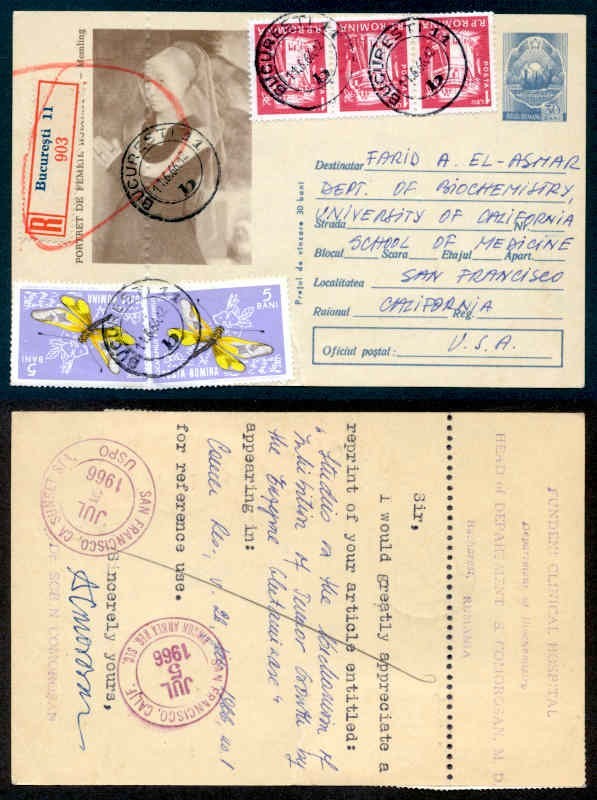 PORTRET DE FEMEIE
Memling
R
București 11
903
R.P.ROMINA
POSTA
1 LEU
BUCUREȘTI 11
POSTA ROMINA
5 BANI
Prețul de vînzare 30 bani
Destinatar FARID A. EL-ASMAR
DEPT. OF BIOCHEMISTRY,
Strada UNIVERSITY OF CALIFORNIA Nr.
Blocul Scara Etajul Apart.
SCHOOL OF MEDICINE
Localitatea SAN FRANCISCO
Raionul CALIFORNIA Reg.
Oficiul poștal: U.S.A.
FUNDENI CLINICAL HOSPITAL
Department of Biochemistry
HEAD of DEPARTMENT S. COMOROSAN, M. D
Bucharest, RUMANIA
Sir,
I would greatly appreciate a
reprint of your article entitled:
"Studies on the Mechanism of
Inhibition of Tumor Growth by
the Enzyme Glutaminase"
appearing in:
Cancer Res., v. 26, 1966, no. 1
for reference use.
Sincerely yours,
SAN FRANCISCO, CALIF.
JUL 5 1966
SAN FRANCISCO, CA
JUL 1966
USPO